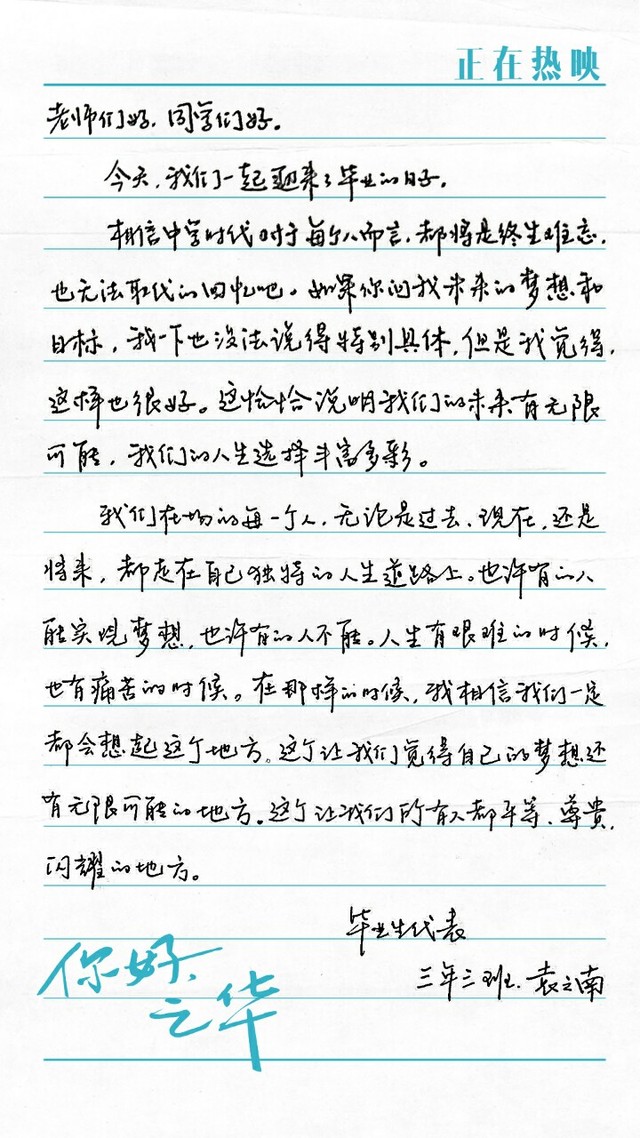 正在热映
老师们好，同学们好。
今天，我们一起迎来了毕业的日子。
相信中学时代对于每个人而言，都将是终生难忘，
也无法取代的回忆吧。如果你问我未来的梦想和
目标，我一下也没法说得特别具体，但是我觉得，
这样也很好。这恰恰说明我们的未来有无限
可能，我们的人生选择丰富多彩。
我们在场的每一个人，无论是过去、现在，还是
将来，都走在自己独特的人生道路上。也许有的人
能实现梦想，也许有的人不能。人生有艰难的时候，
也有痛苦的时候。在那样的时候，我相信我们一定
都会想起这个地方。这个让我们觉得自己的梦想还
有无限可能的地方。这个让我们所有人都平等、尊贵、
闪耀的地方。
毕业生代表
三年三班，袁之南
你好，
之华